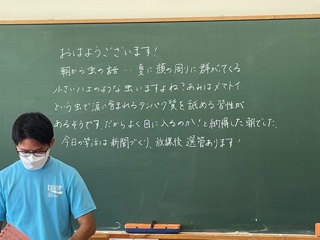 おはようございます！
朝から虫の話…夏に顔の周りに群がってくる
小さいハエのような虫いますよね？あれはメマトイ
という虫で涙に含まれるタンパク質を舐める習性が
あるそうです。だからよく目に入るのか！と納得した朝でした。
今日の学活は新聞づくり、放課後 選管あります！